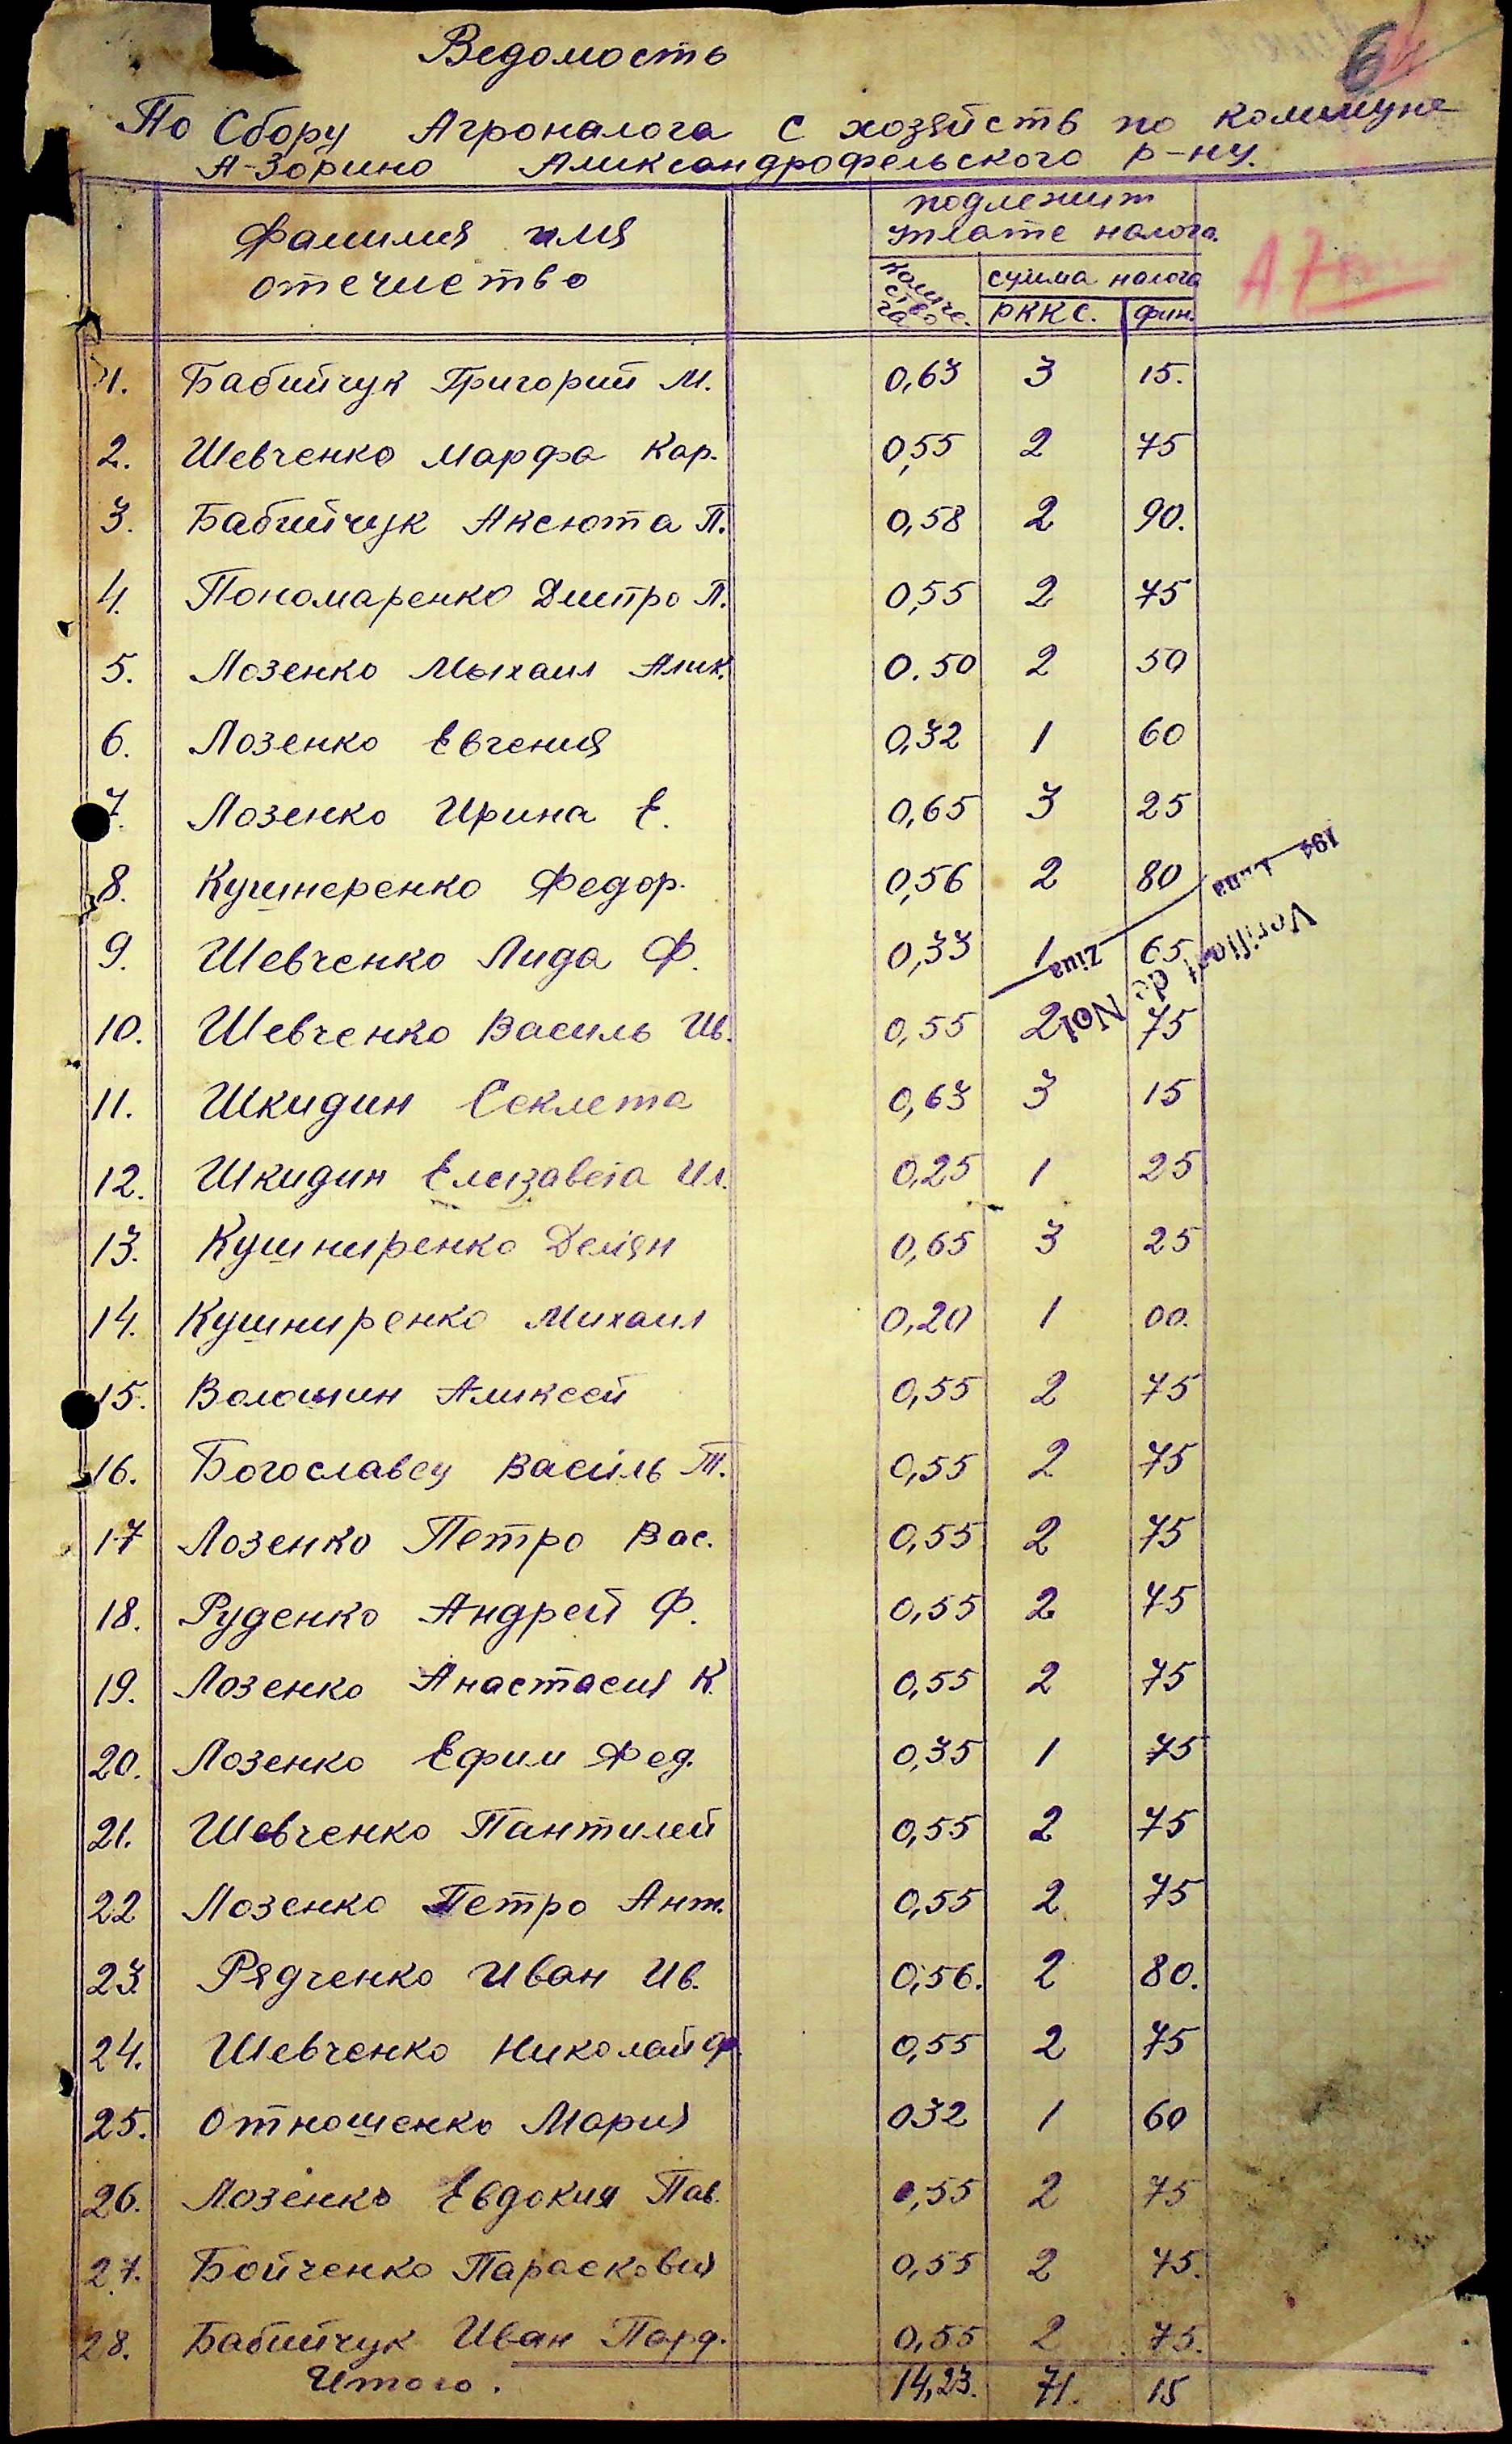 6
Ведомость
По Сбору Агроналога с хозяйств по коммуне
А-Зорино Аликсандрофельского р-ну.
Фамилия имя
отечиство
подлежит
уплате налога.
количе.
ство
га
сумма налога
РККС. фин.
1. Бабийчук Григорий М. 0,63 3 15.
2. Шевченко Марфа Кар. 0,55 2 75
3. Бабийчук Аксюта П. 0,58 2 90.
4. Пономаренко Дмитро П. 0,55 2 75
5. Лозенко Мыхаил Алик. 0.50 2 50
6. Лозенко Евгения 0,32 1 60
7. Лозенко Ирина Е. 0,65 3 25
8. Кушнеренко Федор. 0,56 2 80
9. Шевченко Лида Ф. 0,33 1 65
10. Шевченко Василь Ив. 0,55 2 75
11. Шкидин Секлета 0,63 3 15
12. Шкидин Елизавета Ил. 0,25 1 25
13. Кушниренко Демян 0,65 3 25
14. Кушниренко Михаил 0,20 1 00.
15. Волошин Аликсей 0,55 2 75
16. Богославсу Василь Т. 0,55 2 75
17 Лозенко Петро Вас. 0,55 2 75
18. Руденко Андрей Ф. 0,55 2 75
19. Лозенко Анастасия К. 0,55 2 75
20. Лозенко Ефим Фед. 0,35 1 75
21. Шевченко Пантилей 0,55 2 75
22 Лозенко Петро Ант. 0,55 2 75
23 Рядченко Иван Ив. 0,56. 2 80.
24. Шевченко Николай Ф 0,55 2 75
25. Отношенко Мария 032 1 60
26. Лозенко Евдокия Пав. 0,55 2 75
27. Бойченко Парасковия 0,55 2 75.
28. Бабийчук Иван Парф. 0,55 2 75.
Итого. 14,23. 71. 15
Verificat de Noi
Ziua Luna 194